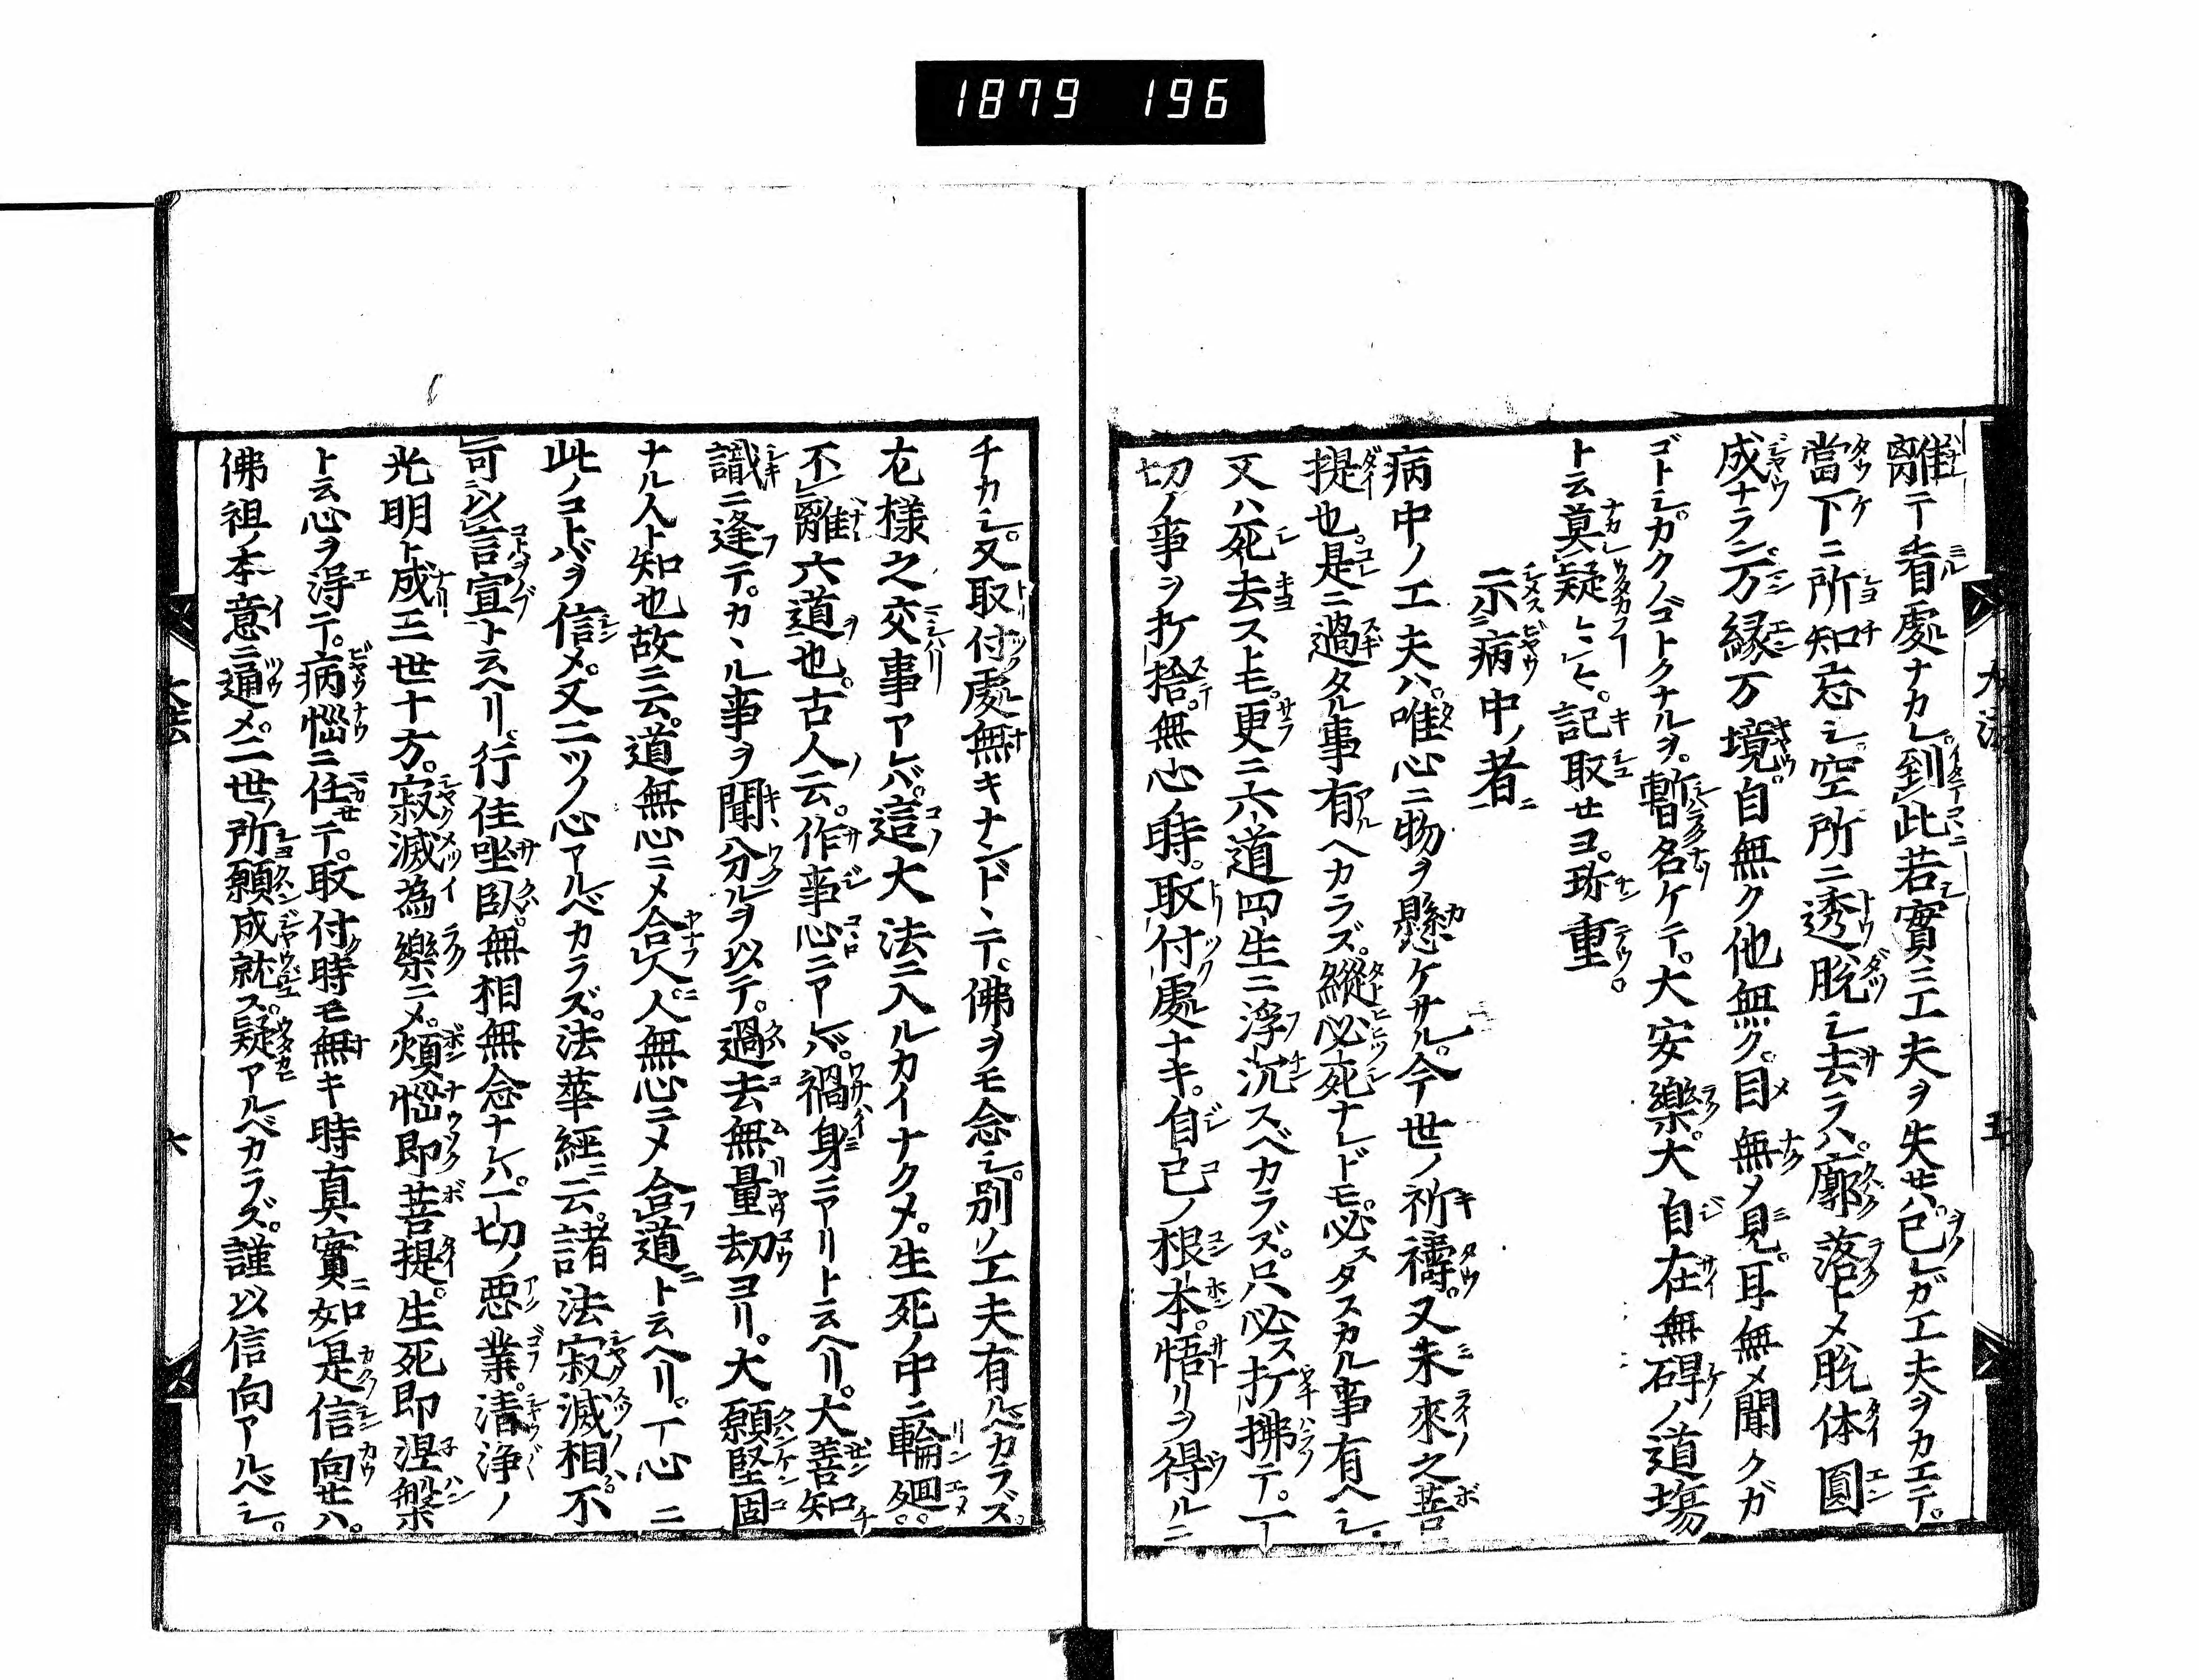 1879 196
離テ看處ナカレ。到此若實ニ工夫ヲ失セハ。已レガ工夫ヲカエテ。
當下ニ所知忘シ。空所ニ透脱シ去ラハ。廓落トメ脱体圓
成ナラン。万縁万境。自無ク他無ク。目無メ見。耳無メ聞クガ
ゴトシ。カクノゴトクナルヲ。暫名ケテ。大安樂。大自在無碍ノ道場
ト云。莫疑
記取せヨ。珎重。
示病中ノ者
病中ノ工夫ハ。唯心ニ物ヲ懸ケサル。今世ノ祈禱。又未來之菩
提也。是ニ過タル事有ヘカラズ。縱必死ナレドモ。必スタスカル事有ヘシ。
又ハ死去ストモ。更ニ六道四生ニ浮沉スベカラズ。只必ス打拂テ。一
切ノ事ヲ打捨。無心ノ時。取付處ナキ。自己ノ根本。悟リヲ得ルニ
チカシ。又取付處無キナンドヽテ。佛ヲモ念シ。別ノ工夫有ルベカラズ。
左様之交事アレバ。這大法ニ入ルカイナクメ。生死ノ中ニ輪廻。
不離六道也。古人云。作事心ニアレバ。禍身ニアリト云ヘリ。大善知
識ニ逢テ。カヽル事ヲ聞分ルヲ以テ。過去無量劫ヨリ。大願堅固
ナル人ト知也故ニ云。道無心ニメ合人。人無心ニメ合道ト云ヘリ。一心ニ
此ノコトバヲ信メ。又二ツノ心アルベカラズ。法華經ニ云。諸法寂滅相。不
可以言宣ト云ヘリ。行住坐臥。無相無念ナレハ。一切ノ悪業。清浄ノ
光明ト成。三世十方。寂滅為樂ニメ。煩惱即菩提。生死即涅槃
ト云心ヲ得テ。病惱ニ任せテ。取付時モ無キ時真實如是信向せハ。
佛祖ノ本意ニ通メ。二世ノ所願成就ス。疑アルベカラズ。謹以信向アルベシ。
大法
五
大法
六